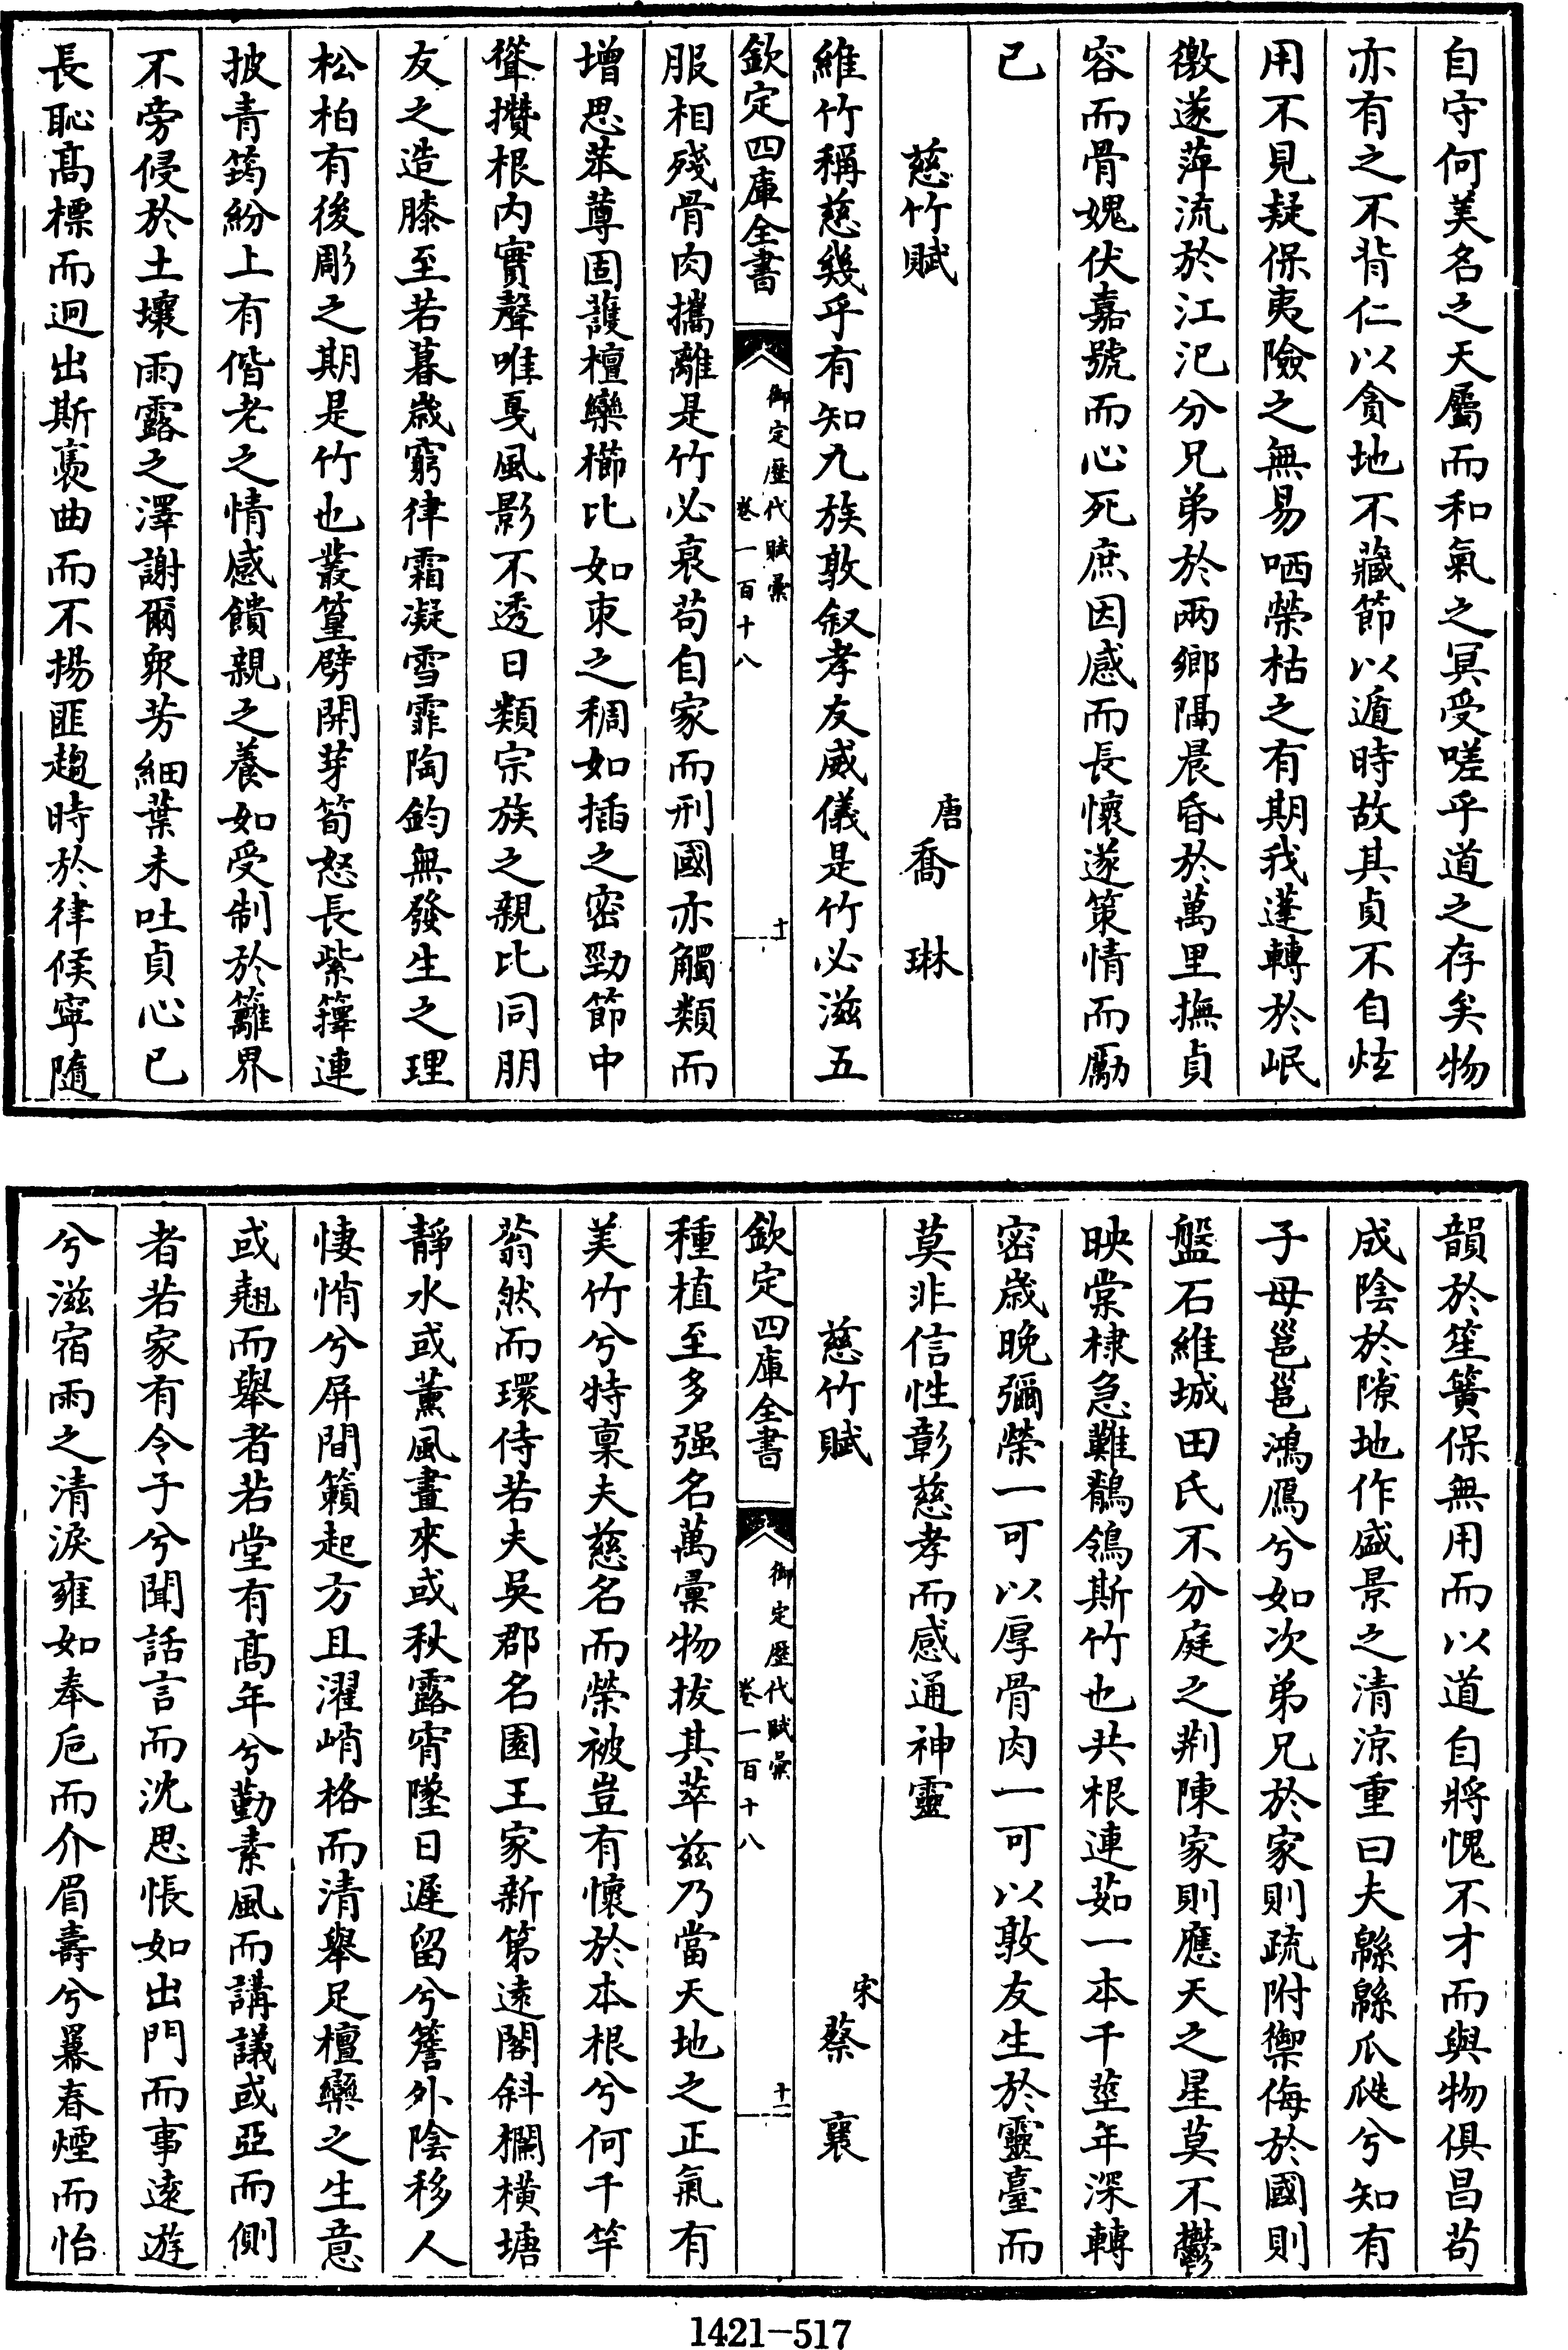 自守何美名之天屬而和氣之冥受嗟乎道之存矣物
亦有之不背仁以貪地不藏節以遁時故其貞不自炫
用不見疑保夷險之無易哂榮枯之有期我蓬轉於岷
徼遂萍流於江汜分兄弟於兩鄉隔晨昏於萬里撫貞
容而骨媿伏嘉號而心死庶因感而長懷遂策情而勵
已
慈竹賦
唐 喬琳
維竹稱慈幾乎有知九族敦叙孝友威儀是竹必滋五
欽定四庫全書
御定歷代賦彙
卷一百十八
十
服相殘骨肉攜離是竹必哀苟自家而刑國亦觸類而
增思苯䔿固䕶檀欒櫛比如朿之稠如插之密勁節中
聳攢根內實聲唯戛風影不透日類宗族之親比同朋
友之造膝至若暮歲窮律霜凝雪霏陶鈞無發生之理
松柏有後彫之期是竹也叢篁劈開芽筍怒長紫籜連
披青筠紛上有偕老之情感饋親之養如受制於籬界
不旁侵於土壤雨露之澤謝爾衆芳細葉未吐貞心已
長恥髙標而迥出斯褭曲而不揚匪趨時於律候寧隨
韻於笙簧保無用而以道自將愧不才而與物俱昌苟
成陰於隙地作盛景之清涼重曰夫緜緜瓜瓞兮知有
子母邕邕鴻鴈兮如次弟兄於家則疏附禦侮於國則
盤石維城田氏不分庭之荆陳家則應天之星莫不鬱
映棠棣急難鶺鴒斯竹也共根連茹一本千莖年深轉
密歲晚彌榮一可以厚骨肉一可以敦友生於靈臺而
莫非信性彰慈孝而感通神靈
慈竹賦
宋 蔡襄
欽定四庫全書
御定歷代賦彙
卷一百十八
十一
種植至多强名萬彙物拔其萃兹乃當天地之正氣有
美竹兮特稟夫慈名而榮被豈有懷於本根兮何千竿
蓊然而環侍若夫吳郡名園王家新第逺閣斜欄橫塘
靜水或薰風晝來或秋露宵墜日遲留兮簷外陰移人
悽悄兮屏間籟起方且濯峭格而清舉足檀欒之生意
或翹而舉者若堂有髙年兮勤素風而講議或亞而側
者若家有令子兮聞話言而沈思悵如出門而事逺遊
兮滋宿雨之清淚雍如奉卮而介眉壽兮羃春煙而怡
1421-517